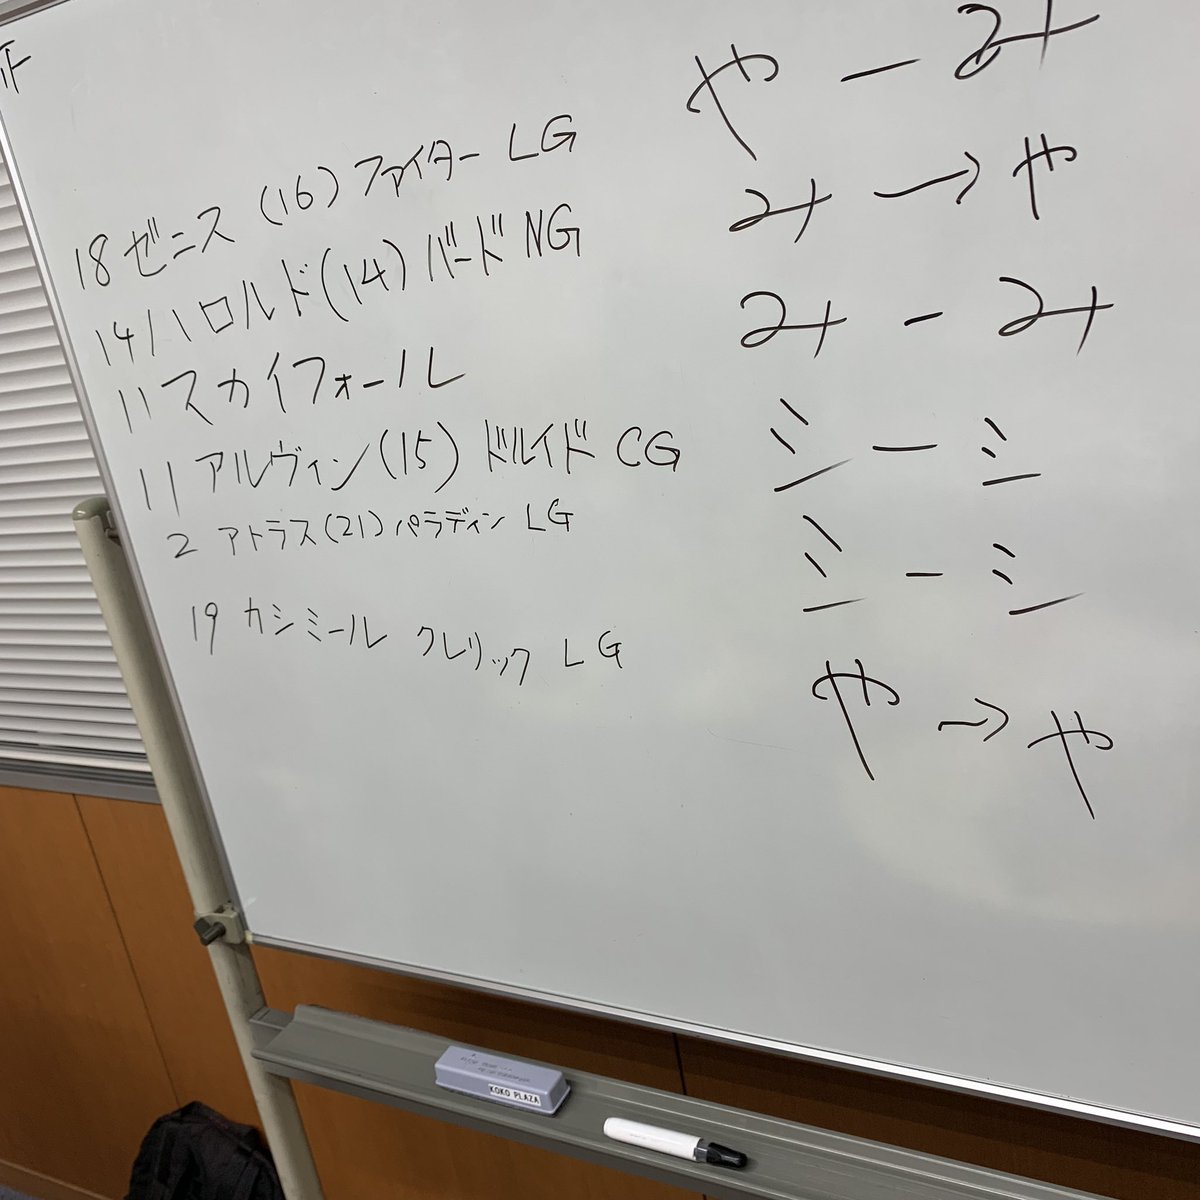 18 ゼニス (16) ファイター LG
14 ハロルド (14) バード NG
11 スカイフォール
11 アルヴィン (15) ドルイド CG
2 アトラス (21) パラディン LG
19 カシミール クレリック LG
や － み
み → や
み － み
シ － シ
シ － シ
や → や
KOKO PLAZA